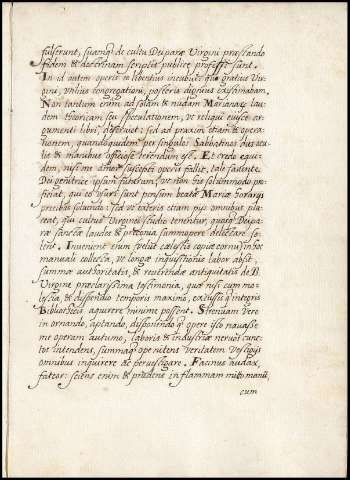 fulserunt, suamq; de cultu Deiparæ Virgini præstando
fidem & doctrinam scriptis publicè professi sunt.
In id autem operis eò libentius incubui: quo gratius Vir-
gini, vtilius congregationi, posteris dignius existimabam.
Non tantum enim ad solam & nudam Marianæ lau-
dem theoricam seu speculationem, vt reliqui eiusce ar-
gumenti libri, deseruit: sed ad praxim etiam & opera-
tionem, quandoquidem per singulos Sabbathinos dies oculis
& manibus officiosè terendum est. Et credo equi-
dem, nisi me amor suscepti operis fallit, tale
Dei genitrice ipsam futurum, vt non his solummodo pro-
ficiat, qui soluere sunt pensum beatæ Mariæ horarijs
precibus soluendi: sed vt cæteris etiam pijs omnibus pla-
ceat, qui cultus Virginei studio tenentur, quiq; Deipa-
ræ sanctæ laudes & præconia summopere delibare so-
litis. Invenient enim velut cælestis copiæ cornu in hoc
manuali collecta, vt longæ inquisitionis labor absit,
summæ authoritatis, & reuerendæ antiquitatis de B.
Virgine præclarissima testimonia, quæ nisi cum mo-
lestia, & dispendio temporis maximo, excussis integris
Bibliothecis aquirere minime possent. Strenuam vero
in ornando, aptando, disponendoq; opere isto nauasse
me operam autumo, laboris & industriæ neruos cunc-
tos intendens, summaq; ope nitens veritatem vestigijs
omnibus inquirere ac peruestigare. Facinus audax,
fateor: sciens enim & prudens in flammam mitto manũ,
cum